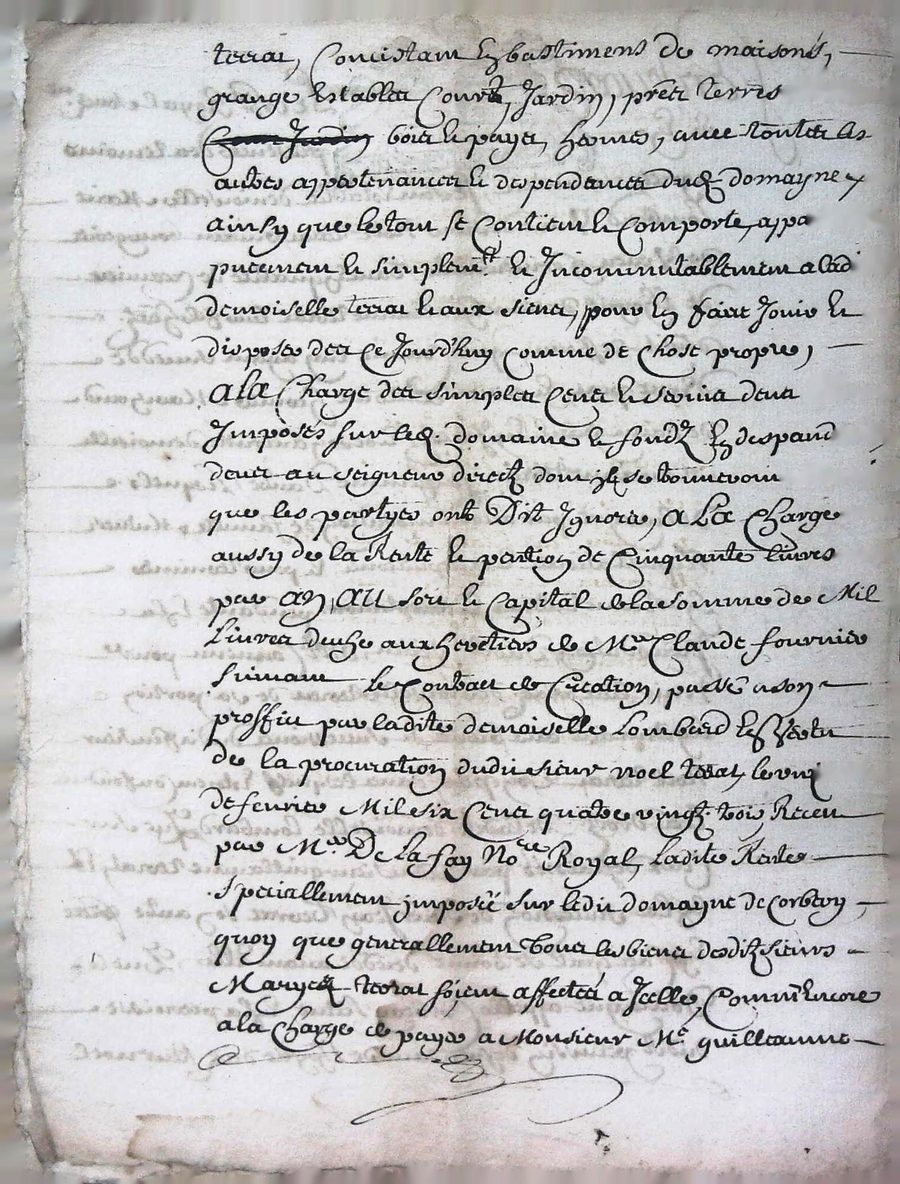 terrat, Concistant En bastiment de maisons,
grange Estables Courts, Jardin, préz terres
bois et payes, hermes, avec toutes les
autres appertenances et despendances dud. domayne
ainsy que le tout se Contient et Comporte, appa
purement et simplemt. et Incommutablement a lad
demoiselle terrat et aux siens, pour En faire Jouir et
disposer des Ce Jourd'huy Comme de Chose propre,
a la Charge des simples Cens et servis deus
Imposés sur led. domaine et fondz En despand
dens au seigneur direct dont ilz se trouveront
que les partyes ont Dit Ignorer, a La Charge
aussy de la Rente et pention de Cinquante livres
par an, au sort et Capital de la somme de Mil
livres deuhe aux heretiers de Mre Claude fournier
suivant le Contract de Creation, passé a son
proffit par ladite demoiselle Lombard En Vertu
de la procuration dudit sieur noel terrat, le
de fevrier Mil six Cens quatre vingt. trois Receu
par Mre De La fay Nore Royal, Ladite Rente
speciallement imposée sur ledit domayne de Corbery,
quoy que generallement tous les biens desditz sieurs
Maryez terrat soient affectés a Icelle, Comm' Encore
a la Charge de payer a Monsieur Me guilleaume